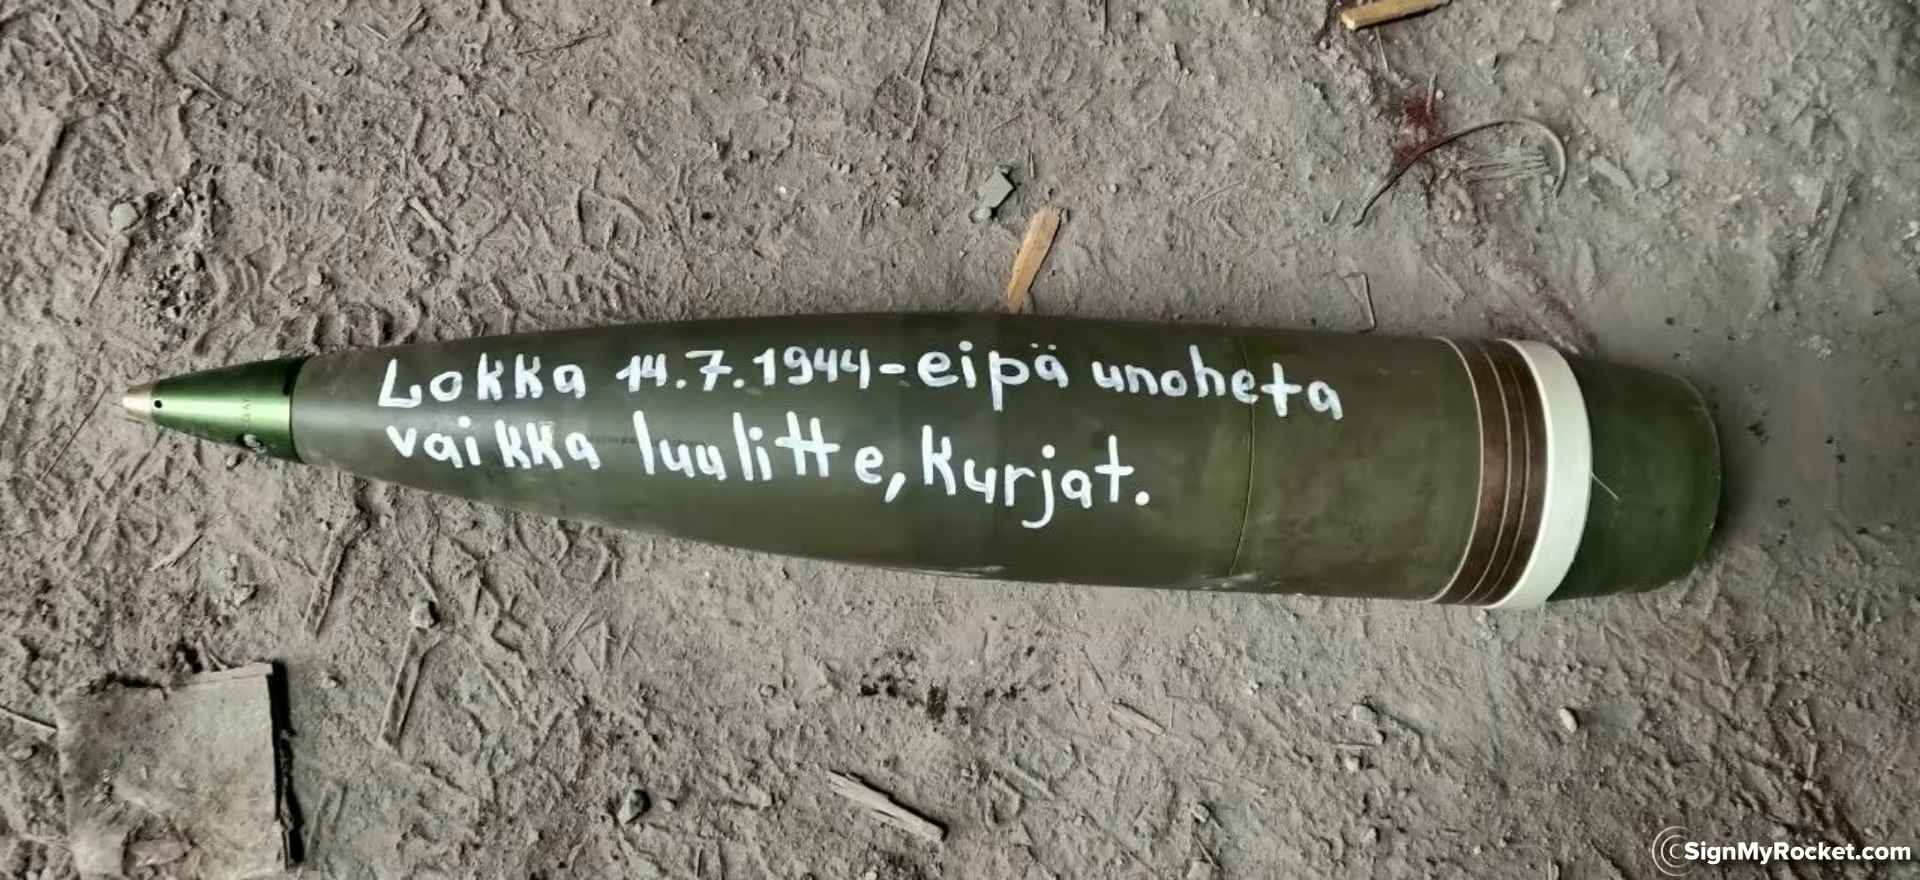 Lokka 14.7.1944-eipä unoheta
vaikka luulitte, kurjat.
SignMyRocket.com